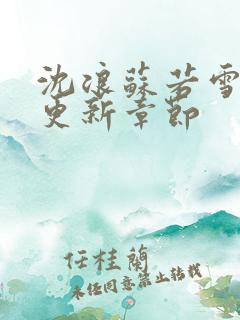 沈浪蘇若雪
更新章節
任桂蘭
未經同意禁止轉載